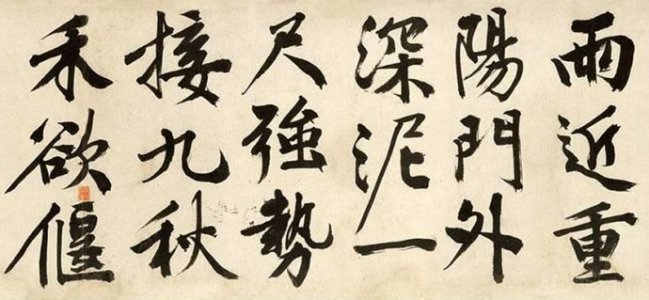 雨近重
陽門外
深泥一
尺強勢
接九秋
禾欲偃